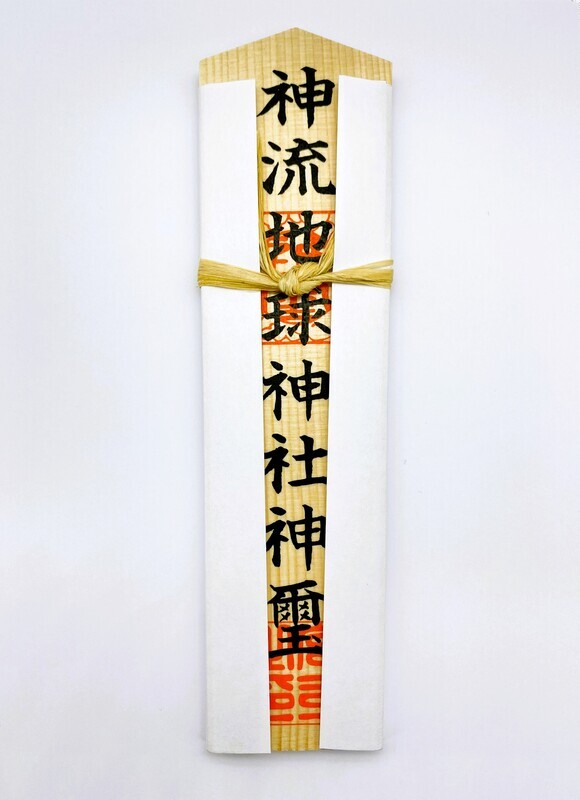 神流地球神社神璽